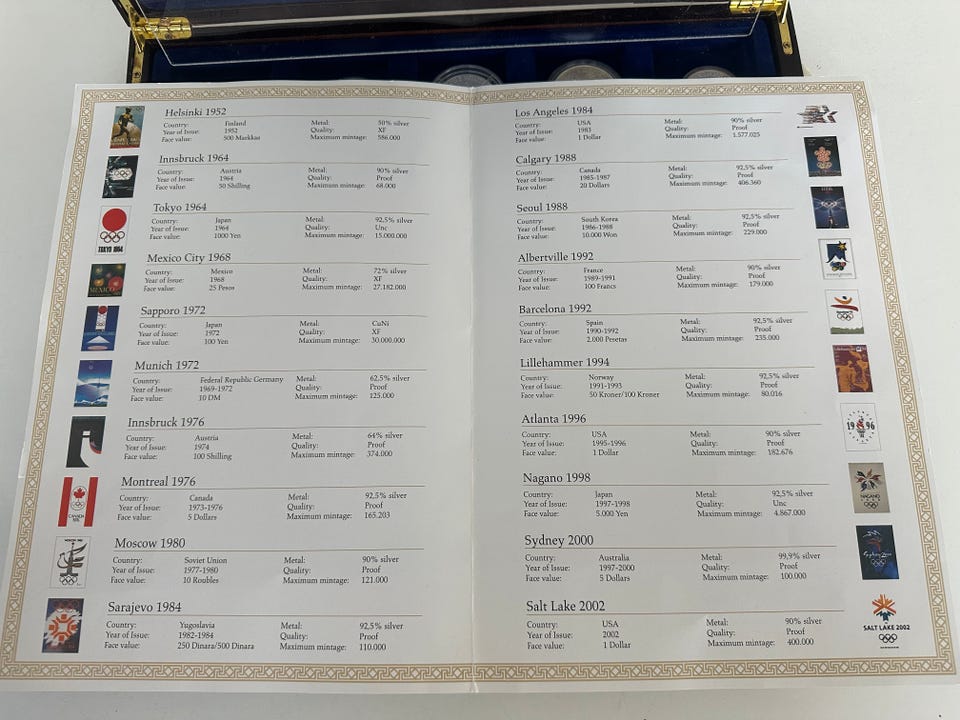 Helsinki 1952
Country: Finland Metal: 50% silver
Year of Issue: 1952 Quality: XF
Face value: 500 Markkas Maximum mintage: 586.000
Innsbruck 1964
Country: Austria Metal: 90% silver
Year of Issue: 1964 Quality: Proof
Face value: 50 Shilling Maximum mintage: 68.000
Tokyo 1964
Country: Japan Metal: 92,5% silver
Year of Issue: 1964 Quality: Unc
Face value: 1000 Yen Maximum mintage: 15.000.000
TOKYO 1964
Mexico City 1968
Country: Mexico Metal: 72% silver
Year of Issue: 1968 Quality: XF
Face value: 25 Pesos Maximum mintage: 27.182.000
MEXICO
Sapporo 1972
Country: Japan Metal: CuNi
Year of Issue: 1972 Quality: XF
Face value: 100 Yen Maximum mintage: 30.000.000
Munich 1972
Country: Federal Republic Germany Metal: 62,5% silver
Year of Issue: 1969-1972 Quality: Proof
Face value: 10 DM Maximum mintage: 125.000
Innsbruck 1976
Country: Austria Metal: 64% silver
Year of Issue: 1974 Quality: Proof
Face value: 100 Shilling Maximum mintage: 374.000
Montreal 1976
Country: Canada Metal: 92,5% silver
Year of Issue: 1973-1976 Quality: Proof
Face value: 5 Dollars Maximum mintage: 165.203
Moscow 1980
Country: Soviet Union Metal: 90% silver
Year of Issue: 1977-1980 Quality: Proof
Face value: 10 Roubles Maximum mintage: 121.000
Sarajevo 1984
Country: Yugoslavia Metal: 92,5% silver
Year of Issue: 1982-1984 Quality: Proof
Face value: 250 Dinara/500 Dinara Maximum mintage: 110.000
Los Angeles 1984
Country: USA Metal: 90% silver
Year of Issue: 1983 Quality: Proof
Face value: 1 Dollar Maximum mintage: 1.577.025
Calgary 1988
Country: Canada Metal: 92,5% silver
Year of Issue: 1985-1987 Quality: Proof
Face value: 20 Dollars Maximum mintage: 406.360
Seoul 1988
Country: South Korea Metal: 92,5% silver
Year of Issue: 1986-1988 Quality: Proof
Face value: 10.000 Won Maximum mintage: 229.000
Albertville 1992
Country: France Metal: 90% silver
Year of Issue: 1989-1991 Quality: Proof
Face value: 100 Francs Maximum mintage: 179.000
Barcelona 1992
Country: Spain Metal: 92,5% silver
Year of Issue: 1990-1992 Quality: Proof
Face value: 2.000 Pesetas Maximum mintage: 235.000
Lillehammer 1994
Country: Norway Metal: 92,5% silver
Year of Issue: 1991-1993 Quality: Proof
Face value: 50 Kroner/100 Kroner Maximum mintage: 80.016
Atlanta 1996
Country: USA Metal: 90% silver
Year of Issue: 1995-1996 Quality: Proof
Face value: 1 Dollar Maximum mintage: 182.676
19 96
Nagano 1998
Country: Japan Metal: 92,5% silver
Year of Issue: 1997-1998 Quality: Unc
Face value: 5.000 Yen Maximum mintage: 4.867.000
NAGANO
Sydney 2000
Country: Australia Metal: 99,9% silver
Year of Issue: 1997-2000 Quality: Proof
Face value: 5 Dollars Maximum mintage: 100.000
Sydney 2000
Salt Lake 2002
Country: USA Metal: 90% silver
Year of Issue: 2002 Quality: Proof
Face value: 1 Dollar Maximum mintage: 400.000
SALT LAKE 2002